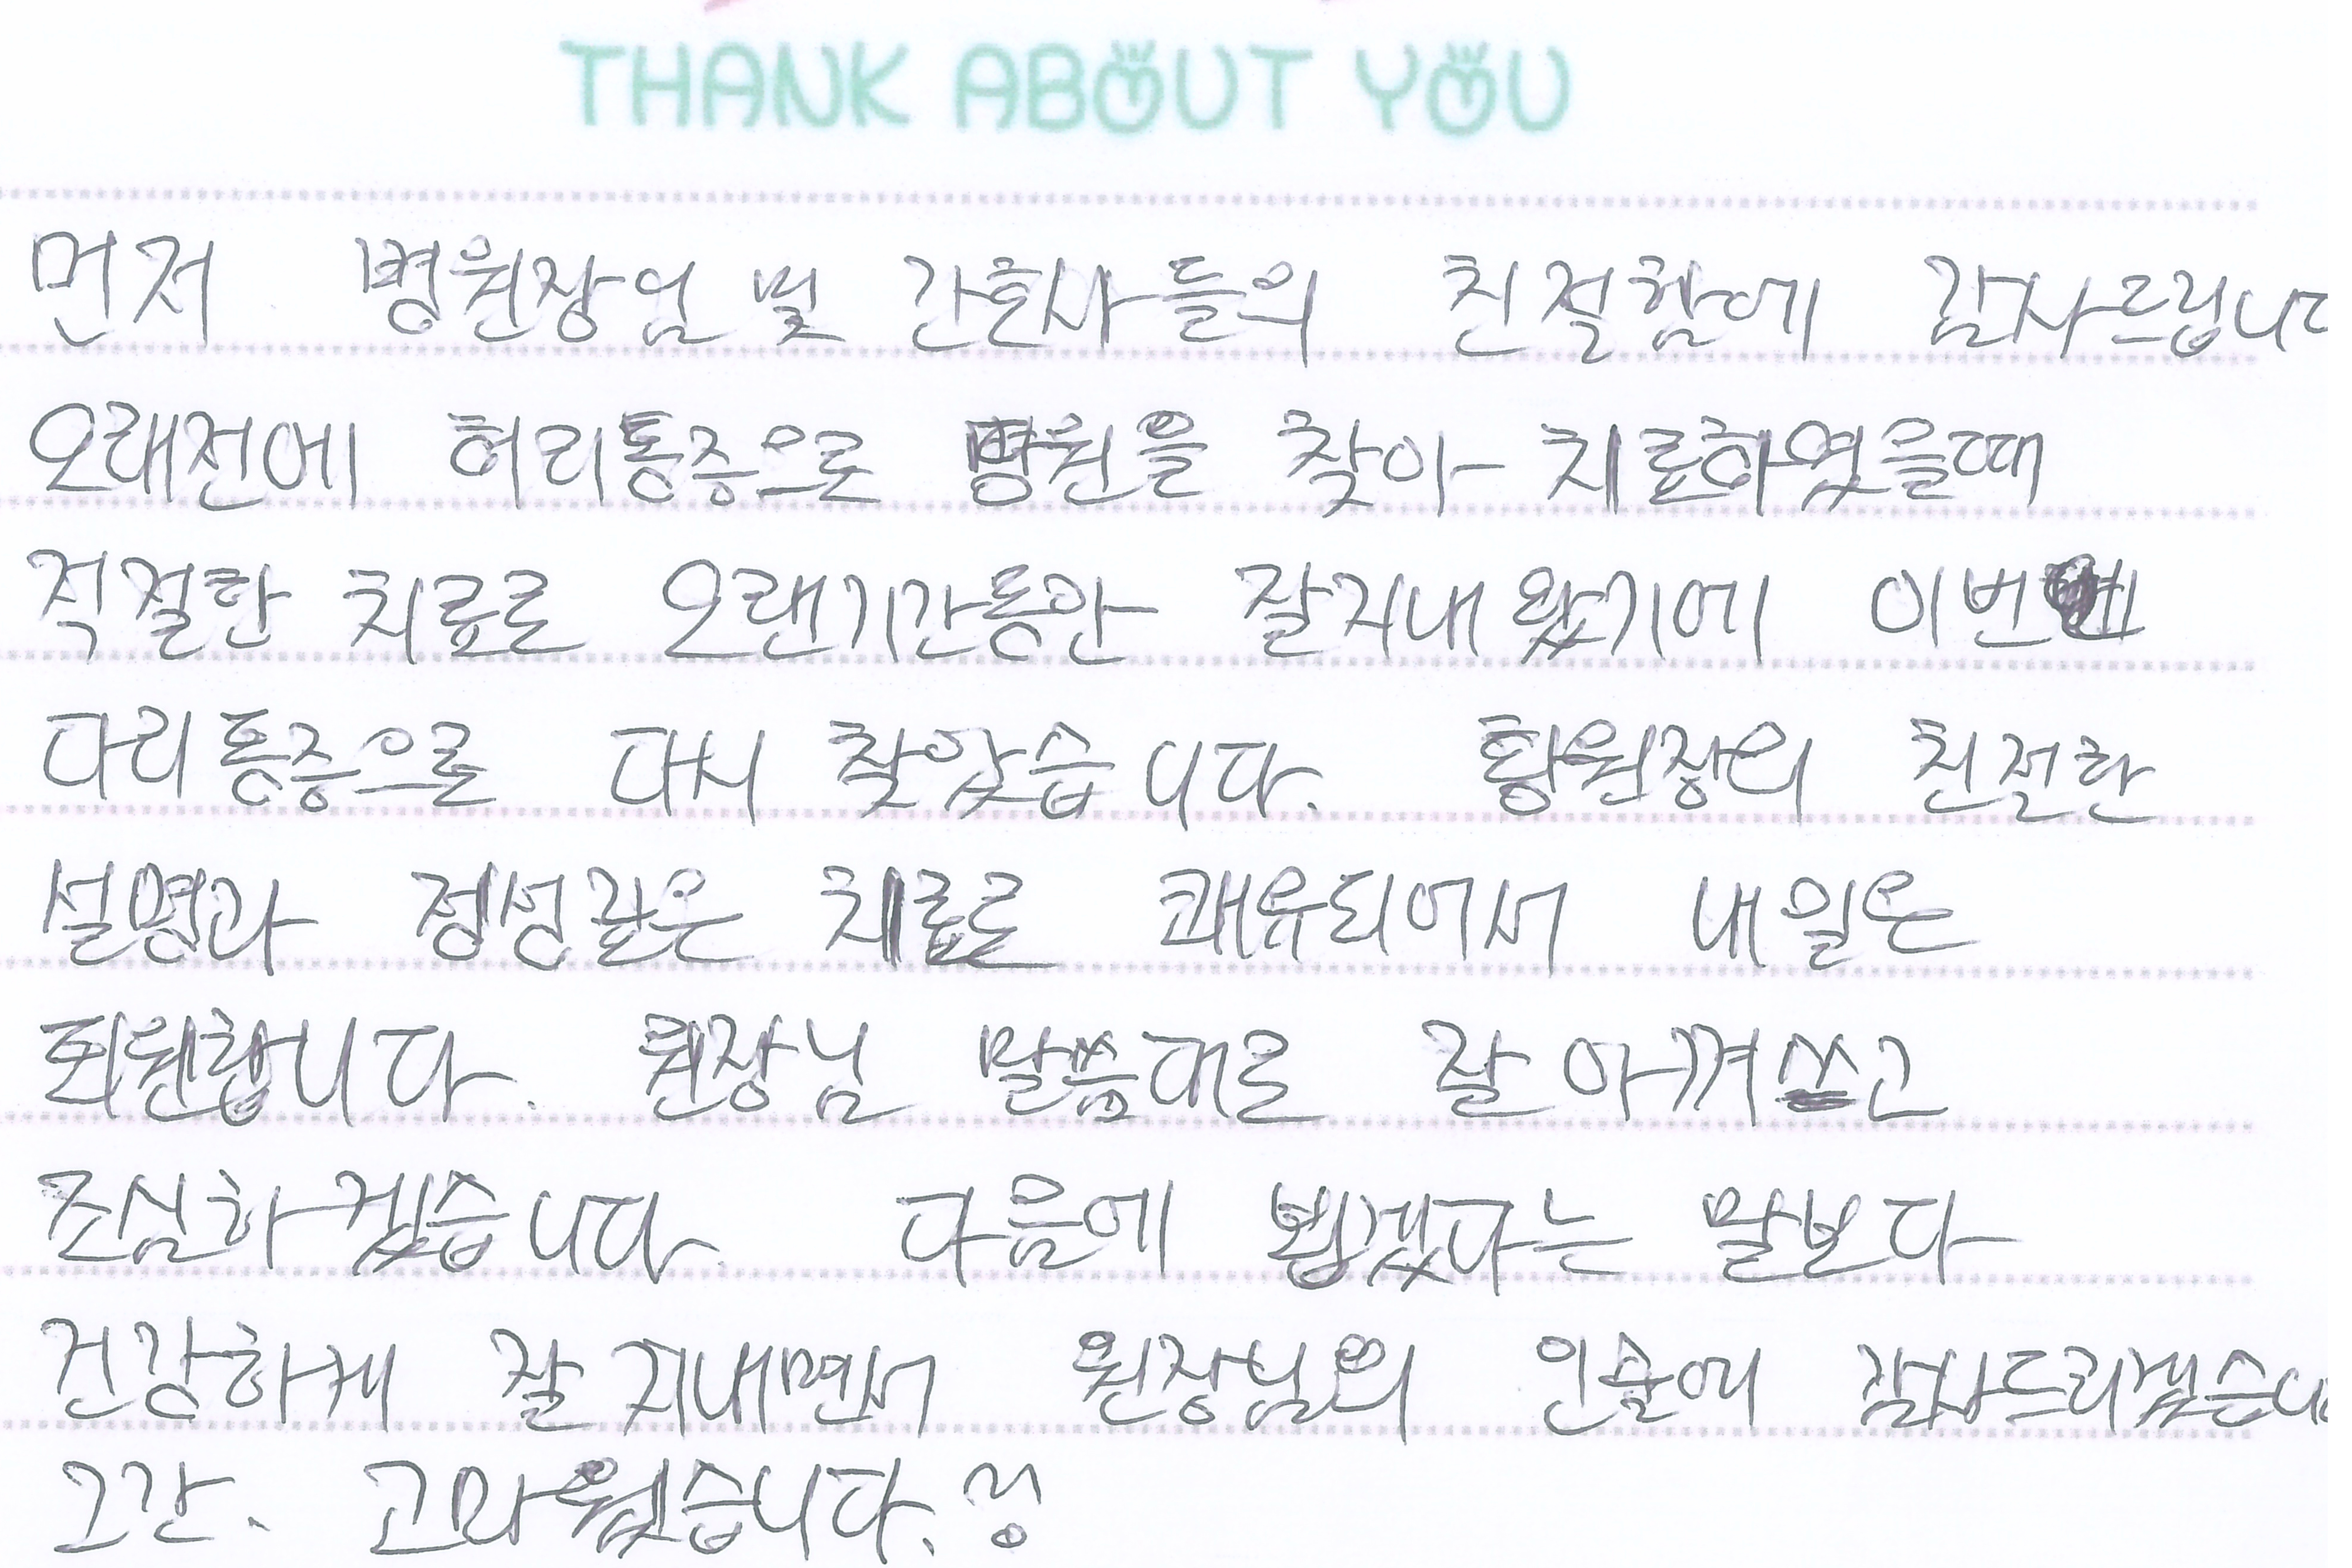 THANK ABOUT YOU
먼저 병원장님 및 간호사들의 친절함에 감사드립니다
오래전에 허리통증으로 병원을 찾아 치료하였을때
적절한 치료로 오랜기간동안 잘지내 왔기에 이번엔
다리통증으로 다시 찾았습니다. 황원장의 친절한
설명과 정성깊은 치료로 쾌유되어서 내일은
퇴원합니다. 원장님 말씀대로 잘 아껴쓰고
조심하겠습니다. 다음에 뵙겠다는 말보다
건강하게 잘 지내면서 원장님의 인술에 감사드리겠습니다
그간. 고마웠습니다.